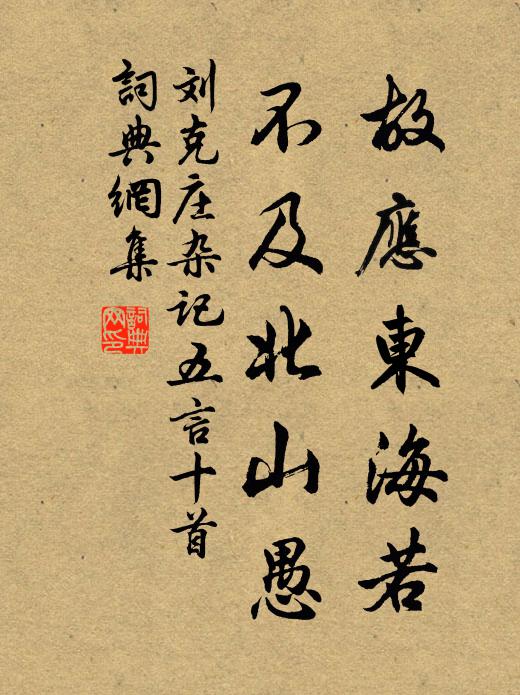 故應東海若
不及北山愚
刘克庄杂记五言十首
詞典網集
詞典
网印